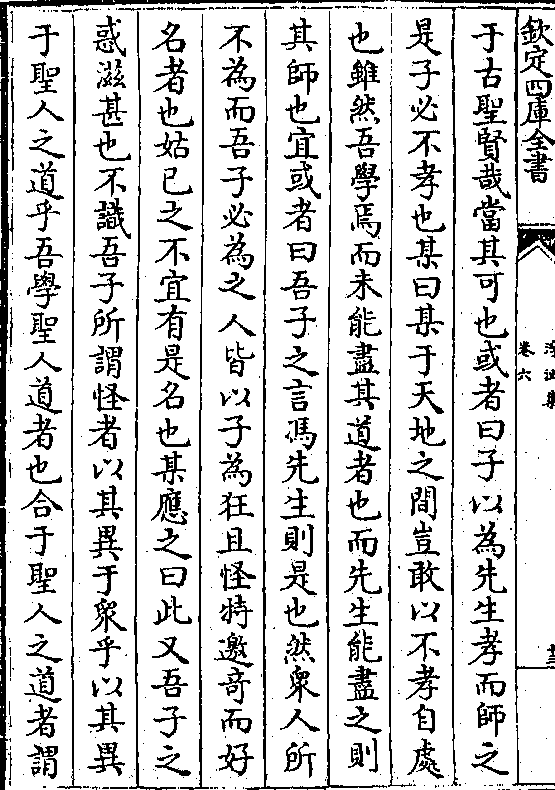 欽定四庫全書
卷六
于古聖賢哉當其可也或者曰子以為先生孝而師之
是子必不孝也某曰某于天地之間豈敢以不孝自處
也雖然吾學焉而未能盡其道者也而先生能盡之則
其師也宜或者曰吾子之言馮先生則是也然衆人所
不為而吾子必為之人皆以子為狂且怪特邀竒而好
名者也姑已之不宜有是名也某應之曰此又吾子之
惑滋甚也不識吾子所謂怪者以其異于衆乎以其異
于聖人之道乎吾學聖人道者也合于聖人之道者謂